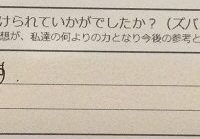 けられていかがでしたか？（ズバ
想が、私達の何よりの力となり今後の参考と